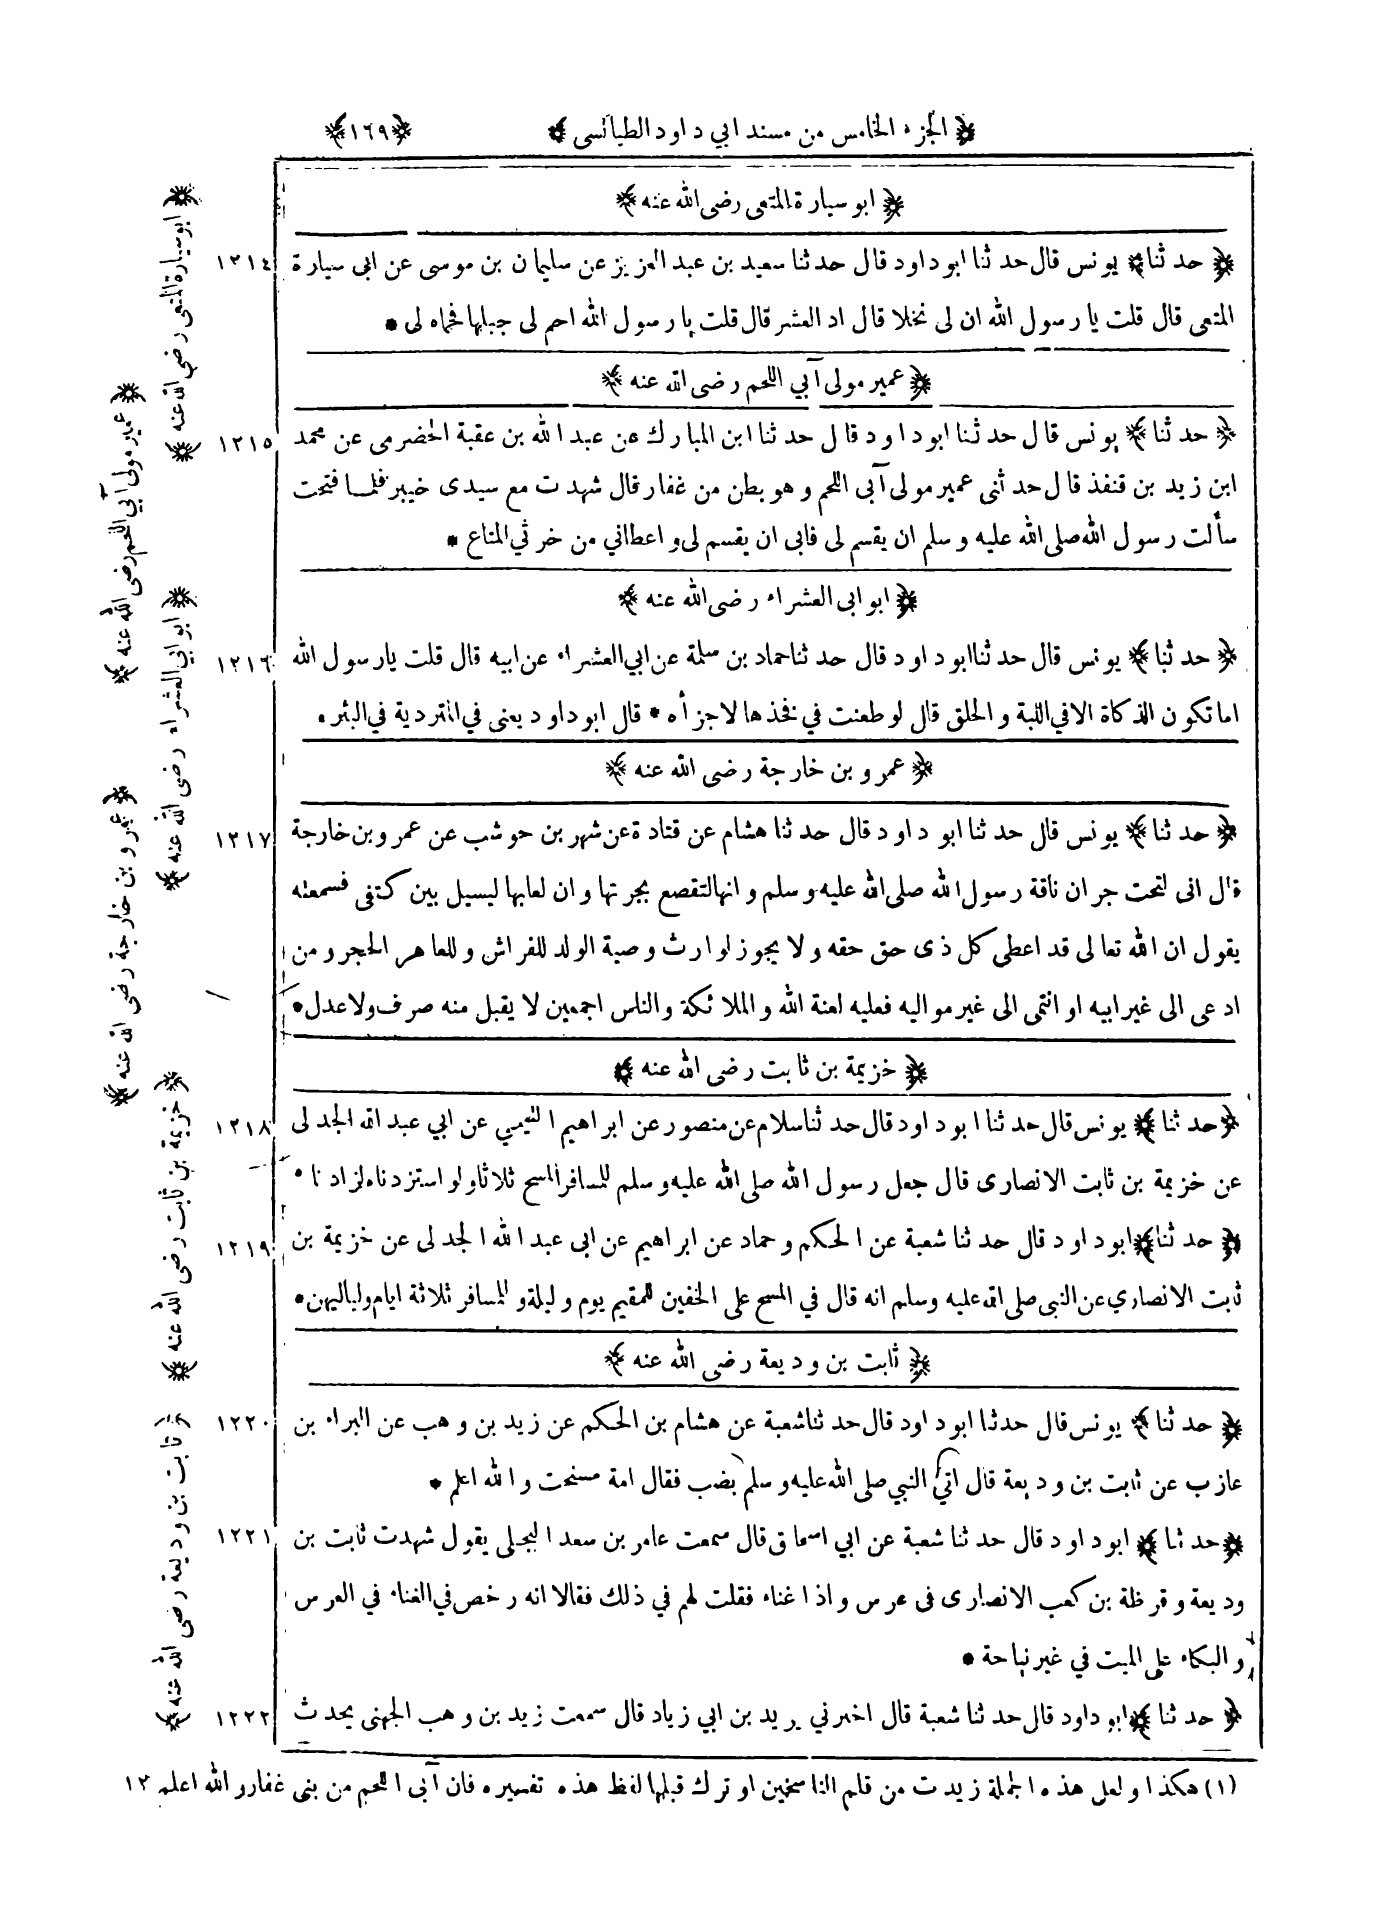 ﴿ الجزء الخامس من مسند ابي داود الطيالسى ﴾ ﴿١٦٩﴾
﴿ ابو سيارة المتعى رضى الله عنه ﴾
﴿ حد ثنا ﴾ يونس قال حد ثنا ابو داود قال حدثنا سعيد بن عبد العزيز عن سليمان بن موسى عن ابى سيارة ١٢١٤
المتعى قال قلت يا رسول الله ان لى نخلا قال اد العشر قال قلت يا رسول الله احم لى جبلها فحماه لى *
﴿ عمير مولى آبي اللحم رضى الله عنه ﴾
﴿ حد ثنا ﴾ يونس قال حد ثنا ابو داود قال حد ثنا ابن المبارك عن عبد الله بن عقبة الحضرمى عن محمد ١٢١٥
ابن زيد بن قنفذ قال حد ثنى عمير مولى آبى اللحم و هو بطن من غفار قال شهدت مع سيدى خيبر فلما فتحت
سألت رسول الله صلى الله عليه و سلم ان يقسم لى فابى ان يقسم لى و اعطاني من خرثي المتاع *
﴿ ابو ابى العشراء رضى الله عنه ﴾
﴿ حد ثنا ﴾ يونس قال حد ثنا ابو داود قال حد ثنا حماد بن سلمة عن ابي العشراء عن ابيه قال قلت يا رسول الله ١٢١٦
اما تكون الذكاة الا في اللبة و الحلق قال لو طعنت في فخذها لاجزأه * قال ابو داود يعنى في المتردية في البئر .
﴿ عمرو بن خارجة رضى الله عنه ﴾
﴿ حد ثنا ﴾ يونس قال حد ثنا ابو داود قال حد ثنا هشام عن قتادة عن شهر بن حوشب عن عمرو بن خارجة ١٢١٧
قال انى لتحت جران ناقة رسول الله صلى الله عليه و سلم و انها لتقصع بجرتها و ان لعابها ليسيل بين كتفى فسمعته
يقول ان الله تعالى قد اعطى كل ذى حق حقه و لا يجوز لوارث وصية الولد للفراش و للعاهر الحجر و من
ادعى الى غير ابيه او انتمى الى غير مواليه فعليه لعنة الله و الملائكة والناس اجمعين لا يقبل منه صرف ولا عدل *
﴿ خزيمة بن ثابت رضى الله عنه ﴾
﴿ حد ثنا ﴾ يونس قال حد ثنا ابو داود قال حد ثنا سلام عن منصور عن ابراهيم التيمي عن ابي عبد الله الجدلى ١٢١٨
عن خزيمة بن ثابت الانصارى قال جعل رسول الله صلى الله عليه و سلم للمسافر المسح ثلاثا ولو استزدناه لزادنا *
﴿ حد ثنا ﴾ ابو داود قال حد ثنا شعبة عن الحكم و حماد عن ابراهيم عن ابى عبد الله الجدلى عن خزيمة بن ١٢١٩
ثابت الانصاري عن النبى صلى الله عليه وسلم انه قال في المسح على الخفين للمقيم يوم و ليلة و للمسافر ثلاثة ايام ولياليهن *
﴿ ثابت بن وديعة رضى الله عنه ﴾
﴿ حد ثنا ﴾ يونس قال حدثنا ابو داود قال حد ثنا شعبة عن هشام بن الحكم عن زيد بن وهب عن البراء بن ١٢٢٠
عازب عن ثابت بن وديعة قال اتي النبي صلى الله عليه و سلم بضب فقال امة مسخت و الله اعلم *
﴿ حد ثنا ﴾ ابو داود قال حد ثنا شعبة عن ابي اسحاق قال سمعت عامر بن سعد البجلى يقول شهدت ثابت بن ١٢٢١
وديعة و قرظة بن كعب الانصارى فى عرس و اذا غناء فقلت لهم في ذلك فقالا انه رخص في الغناء في العرس
و البكاء على الميت في غير نياحة *
﴿ حد ثنا ﴾ ابو داود قال حد ثنا شعبة قال اخبرني يزيد بن ابي زياد قال سمعت زيد بن وهب الجهنى يحدث ١٢٢٢
(١) هكذا و لعل هذه الجملة زيدت من قلم الناسخين او ترك قبلها لفظ هذه تفسيره فان آبى اللحم من بنى غفار و الله اعلم ١٢
﴿ ابو سيارة المتعى رضى الله عنه ﴾
﴿ عمير مولى آبي اللحم رضى الله عنه ﴾
﴿ ابو ابي العشراء رضى الله عنه ﴾
﴿ عمرو بن خارجة رضى الله عنه ﴾
﴿ خزيمة بن ثابت رضى الله عنه ﴾
﴿ ثابت بن وديعة رضى الله عنه ﴾